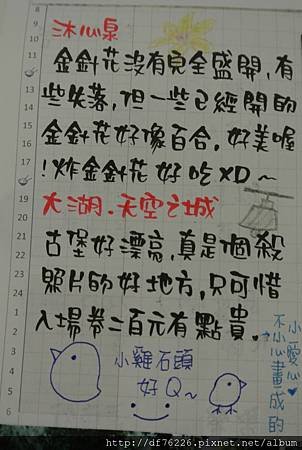 沐心泉
金針花沒有完全盛開,有
些失落,但一些已經開的
金針花好像百合,好美喔
!炸金針花好吃XD~
大湖.天空之城
古堡好漂亮,真是個殺
照片的好地方,只可惜
入場券二百元有點貴.
小雞石頭
好Q~
小愛心♥
不小心畫成的
8
9
10
11
15
16
17
18
19
20
21
22
23
24
1
2
3
4
5
6
http://df76226.pixnet.net/album